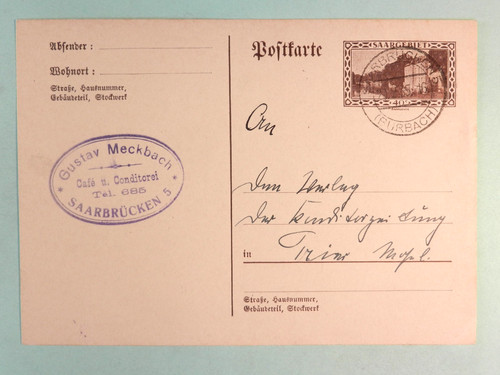 Absender :
Wohnort :
Straße, Hausnummer,
Gebäudeteil, Stockwerk
Gustav Meckbach
Café u. Conditorei
Tel. 685
* SAARBRÜCKEN 5 *
Postkarte
SAARGEBIET
(BURBACH)
An
Den Verlag
der Konditorzeitung
in Trier Mosel.
Straße, Hausnummer,
Gebäudeteil, Stockwerk